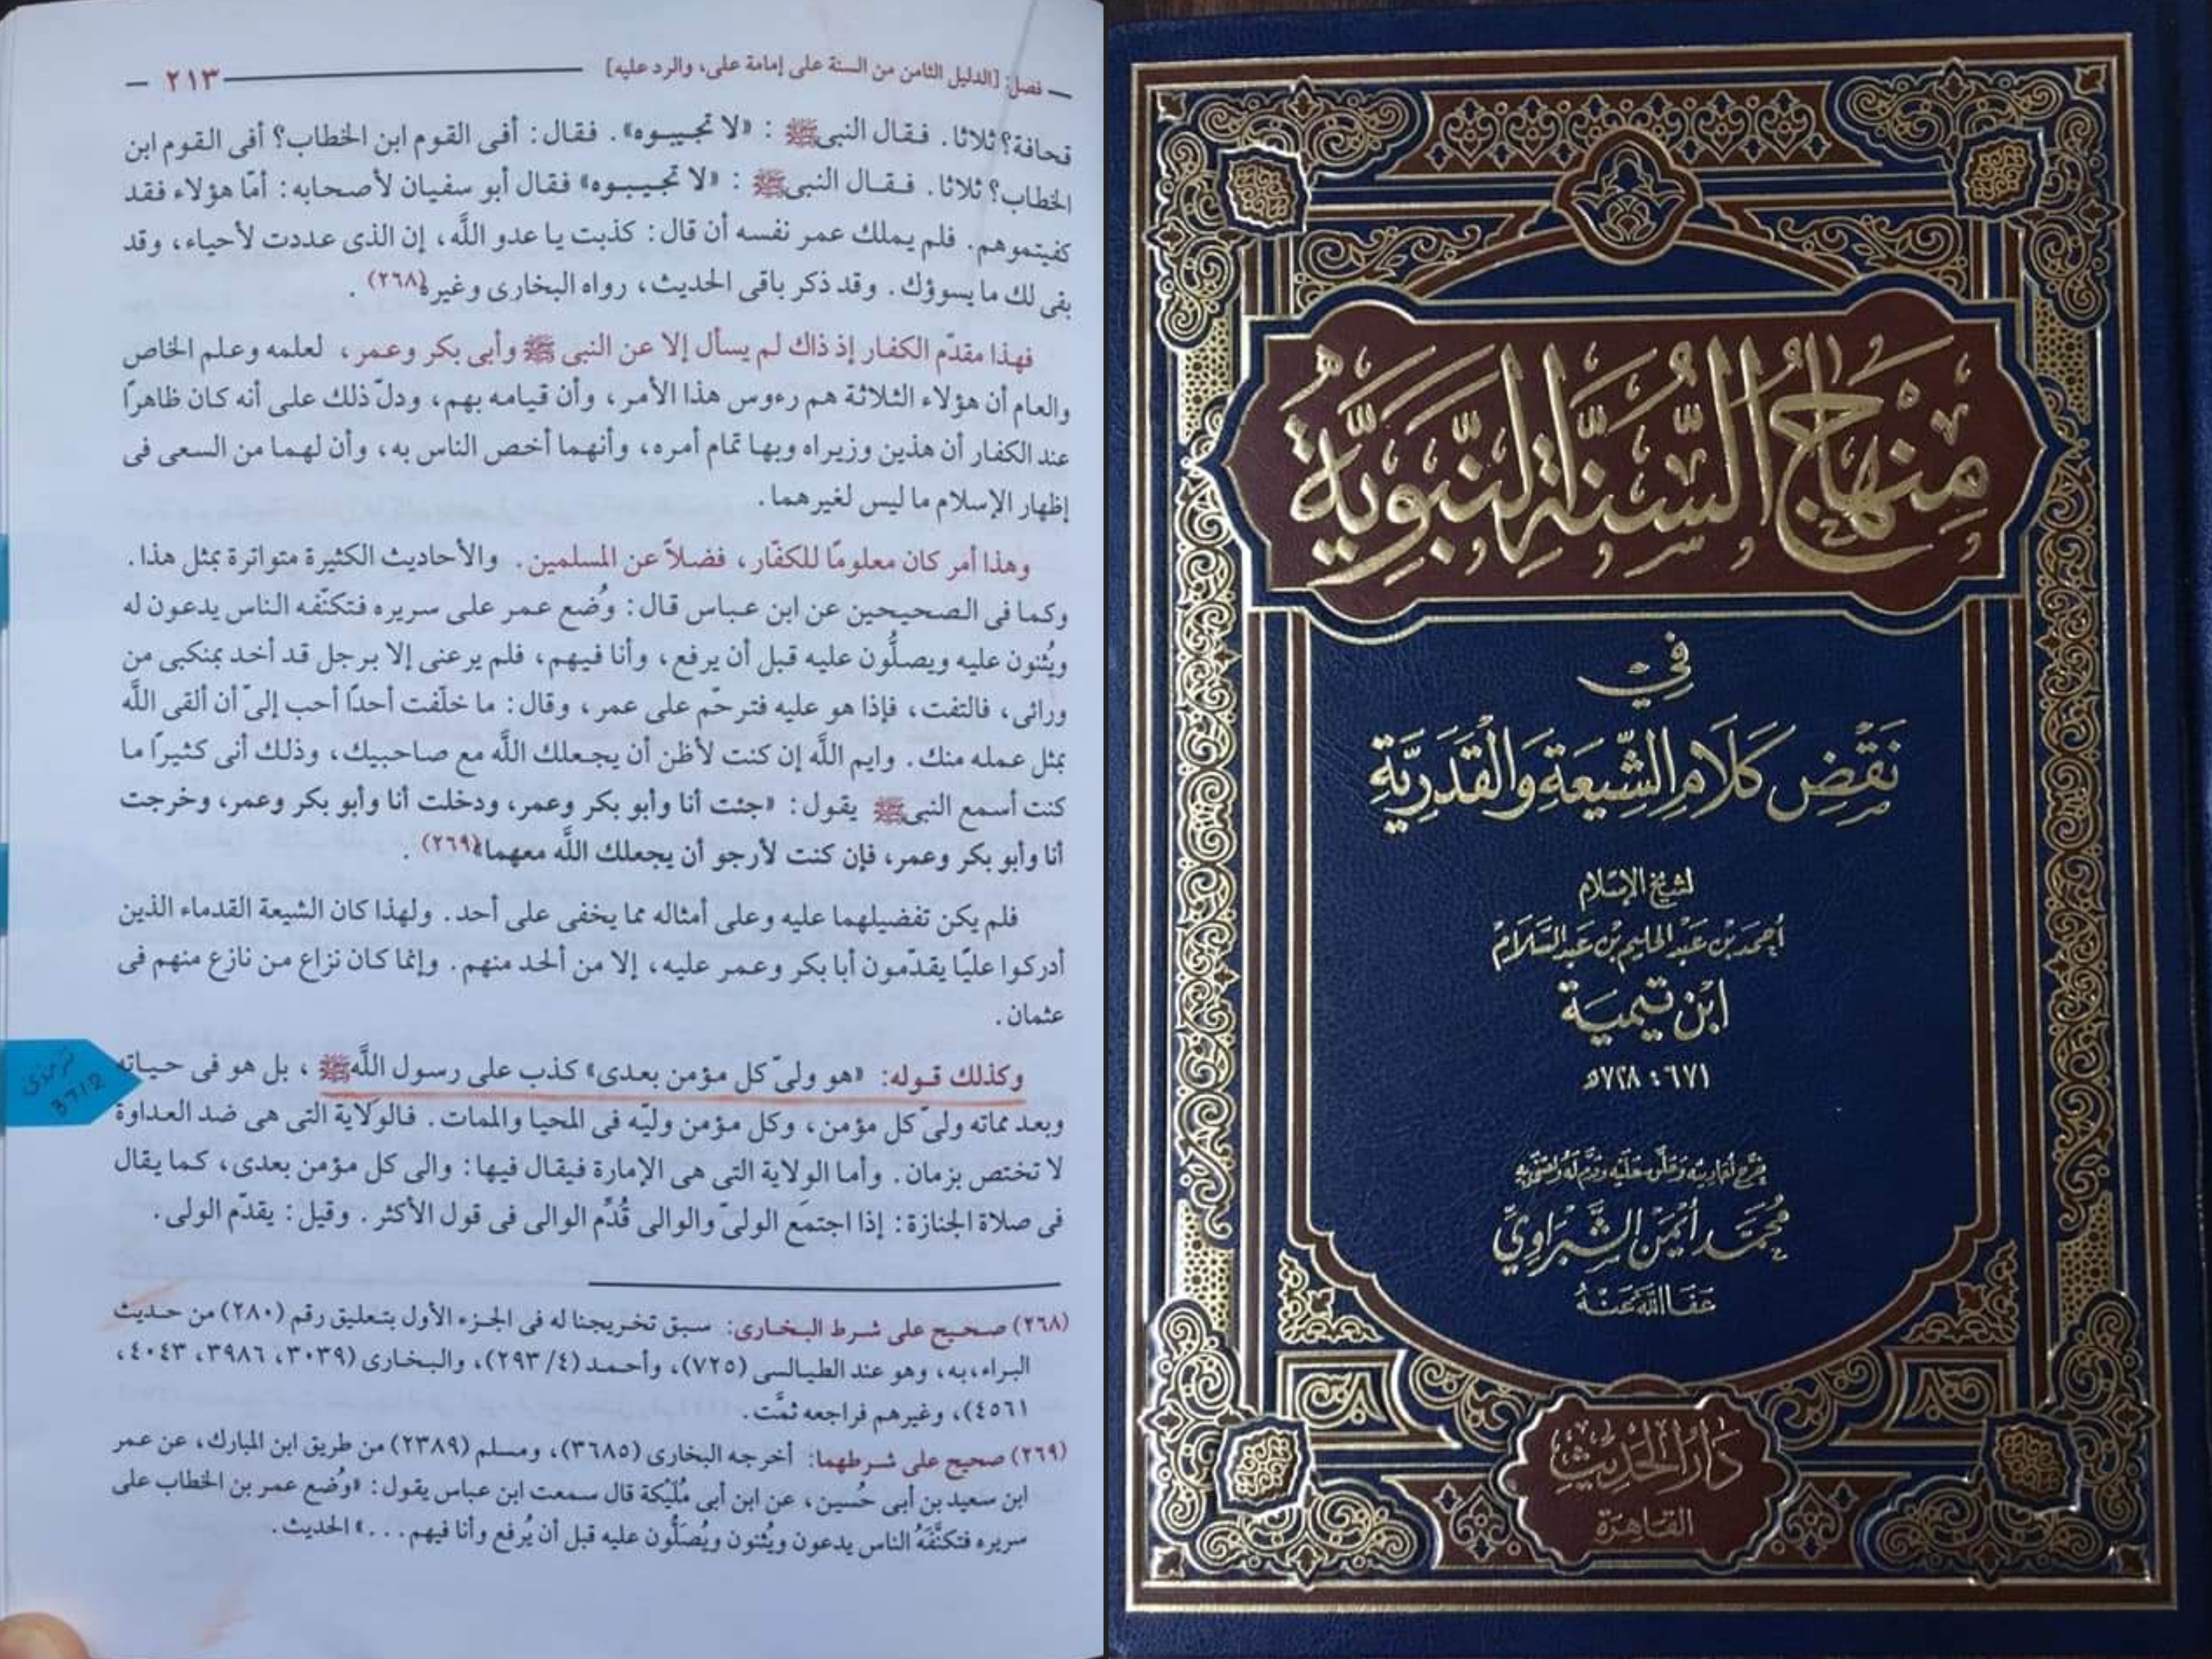 فصل: [الدليل الثامن من السنة على إمامة على، والرد عليه] ٢١٣
قحافة؟ ثلاثا. فقال النبى ﷺ : «لا تجيبوه». فقال: أفى القوم ابن الخطاب؟ أفى القوم ابن
الخطاب؟ ثلاثا. فقال النبى ﷺ : «لا تجيبوه» فقال أبو سفيان لأصحابه: أمّا هؤلاء فقد
كفيتموهم. فلم يملك عمر نفسه أن قال: كذبت يا عدو اللَّه، إن الذى عددت لأحياء، وقد
بقى لك ما يسوؤك. وقد ذكر باقى الحديث، رواه البخارى وغيره(٢٦٨) .
فهذا مقدّم الكفار إذ ذاك لم يسأل إلا عن النبى ﷺ وأبى بكر وعمر، لعلمه وعلم الخاص
والعام أن هؤلاء الثلاثة هم رءوس هذا الأمر، وأن قيامه بهم، ودلّ ذلك على أنه كان ظاهرًا
عند الكفار أن هذين وزيراه وبها تمام أمره، وأنهما أخص الناس به، وأن لهما من السعى فى
إظهار الإسلام ما ليس لغيرهما.
وهذا أمر كان معلومًا للكفّار، فضلاً عن المسلمين. والأحاديث الكثيرة متواترة بمثل هذا.
وكما فى الصحيحين عن ابن عباس قال: وُضع عمر على سريره فتكنّفه الناس يدعون له
ويُثنون عليه ويصلُّون عليه قبل أن يرفع، وأنا فيهم، فلم يرعنى إلا برجل قد أخد بمنكبى من
ورائى، فالتفت، فإذا هو عليه فترحّم على عمر، وقال: ما خلّفت أحدًا أحب إلىّ أن ألقى اللَّه
بمثل عمله منك. وايم اللَّه إن كنت لأظن أن يجعلك اللَّه مع صاحبيك، وذلك أنى كثيرًا ما
كنت أسمع النبى ﷺ يقول: «جئت أنا وأبو بكر وعمر، ودخلت أنا وأبو بكر وعمر، وخرجت
أنا وأبو بكر وعمر، فإن كنت لأرجو أن يجعلك اللَّه معهما»(٢٦٩) .
فلم يكن تفضيلهما عليه وعلى أمثاله مما يخفى على أحد. ولهذا كان الشيعة القدماء الذين
أدركوا عليّا يقدّمون أبا بكر وعمر عليه، إلا من ألحد منهم. وإنما كان نزاع من نازع منهم فى
عثمان.
وكذلك قوله: «هو ولىّ كل مؤمن بعدى» كذب على رسول اللَّه ﷺ ، بل هو فى حياته
وبعد مماته ولىّ كل مؤمن، وكل مؤمن وليّه فى المحيا والممات. فالوَلاية التى هى ضد العداوة
لا تختص بزمان. وأما الولاية التى هى الإمارة فيقال فيها: والى كل مؤمن بعدى، كما يقال
فى صلاة الجنازة: إذا اجتمَع الولىّ والوالى قُدِّم الوالى فى قول الأكثر. وقيل: يقدّم الولى.
ترمذی
3712
(٢٦٨) صحيح على شرط البخارى: سبق تخريجنا له فى الجزء الأول بتعليق رقم (٢٨٠) من حديث
البراء، به، وهو عند الطيالسى (٧٢٥)، وأحمد (٤/ ٢٩٣)، والبخارى (٣٠٣٩، ٣٩٨٦، ٤٠٤٣،
٤٥٦١)، وغيرهم فراجعه ثمَّت.
(٢٦٩) صحيح على شرطهما: أخرجه البخارى (٣٦٨٥)، ومسلم (٢٣٨٩) من طريق ابن المبارك، عن عمر
ابن سعيد بن أبى حُسين، عن ابن أبى مُلَيْكة قال سمعت ابن عباس يقول: «وُضع عمر بن الخطاب على
سريره فتكنَّفَهُ الناس يدعون ويُثنون ويُصَلُّون عليه قبل أن يُرفع وأنا فيهم . . .» الحديث.
مِنْهَاجُ السُّنَّةِ النَّبَوِيَّةِ
فِي
نَقْضِ كَلَامِ الشِّيعَةِ وَالْقَدَرِيَّةِ
لشيخ الإسلام
أحمد بن عبد الحليم بن عبد السلام
ابن تيمية
٦٧١ : ٧٢٨هـ
خرج أحاديثه وعلق عليه وقدم له
محمد أيمن الشبراوي
عَفَا اللهُ عَنْهُ
دار الحديث
القاهرة